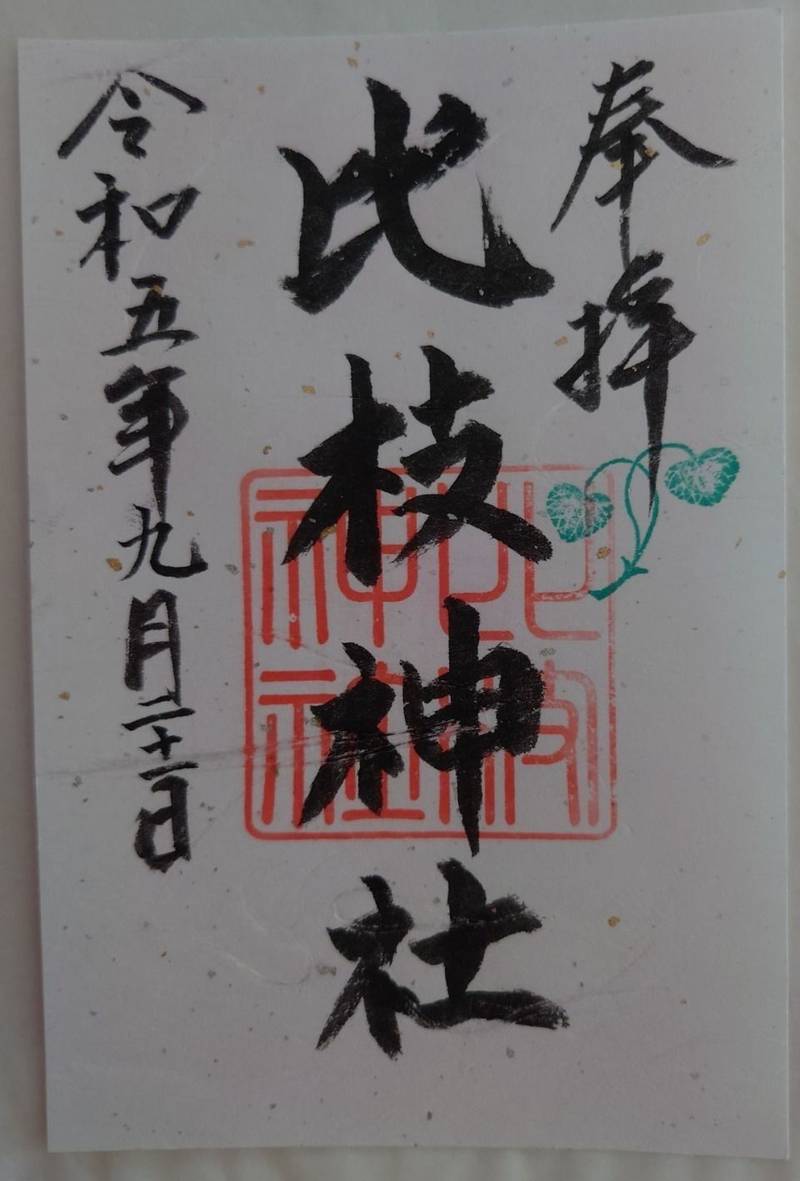 奉拝
比枝神社
比枝神社
令和五年九月二十一日